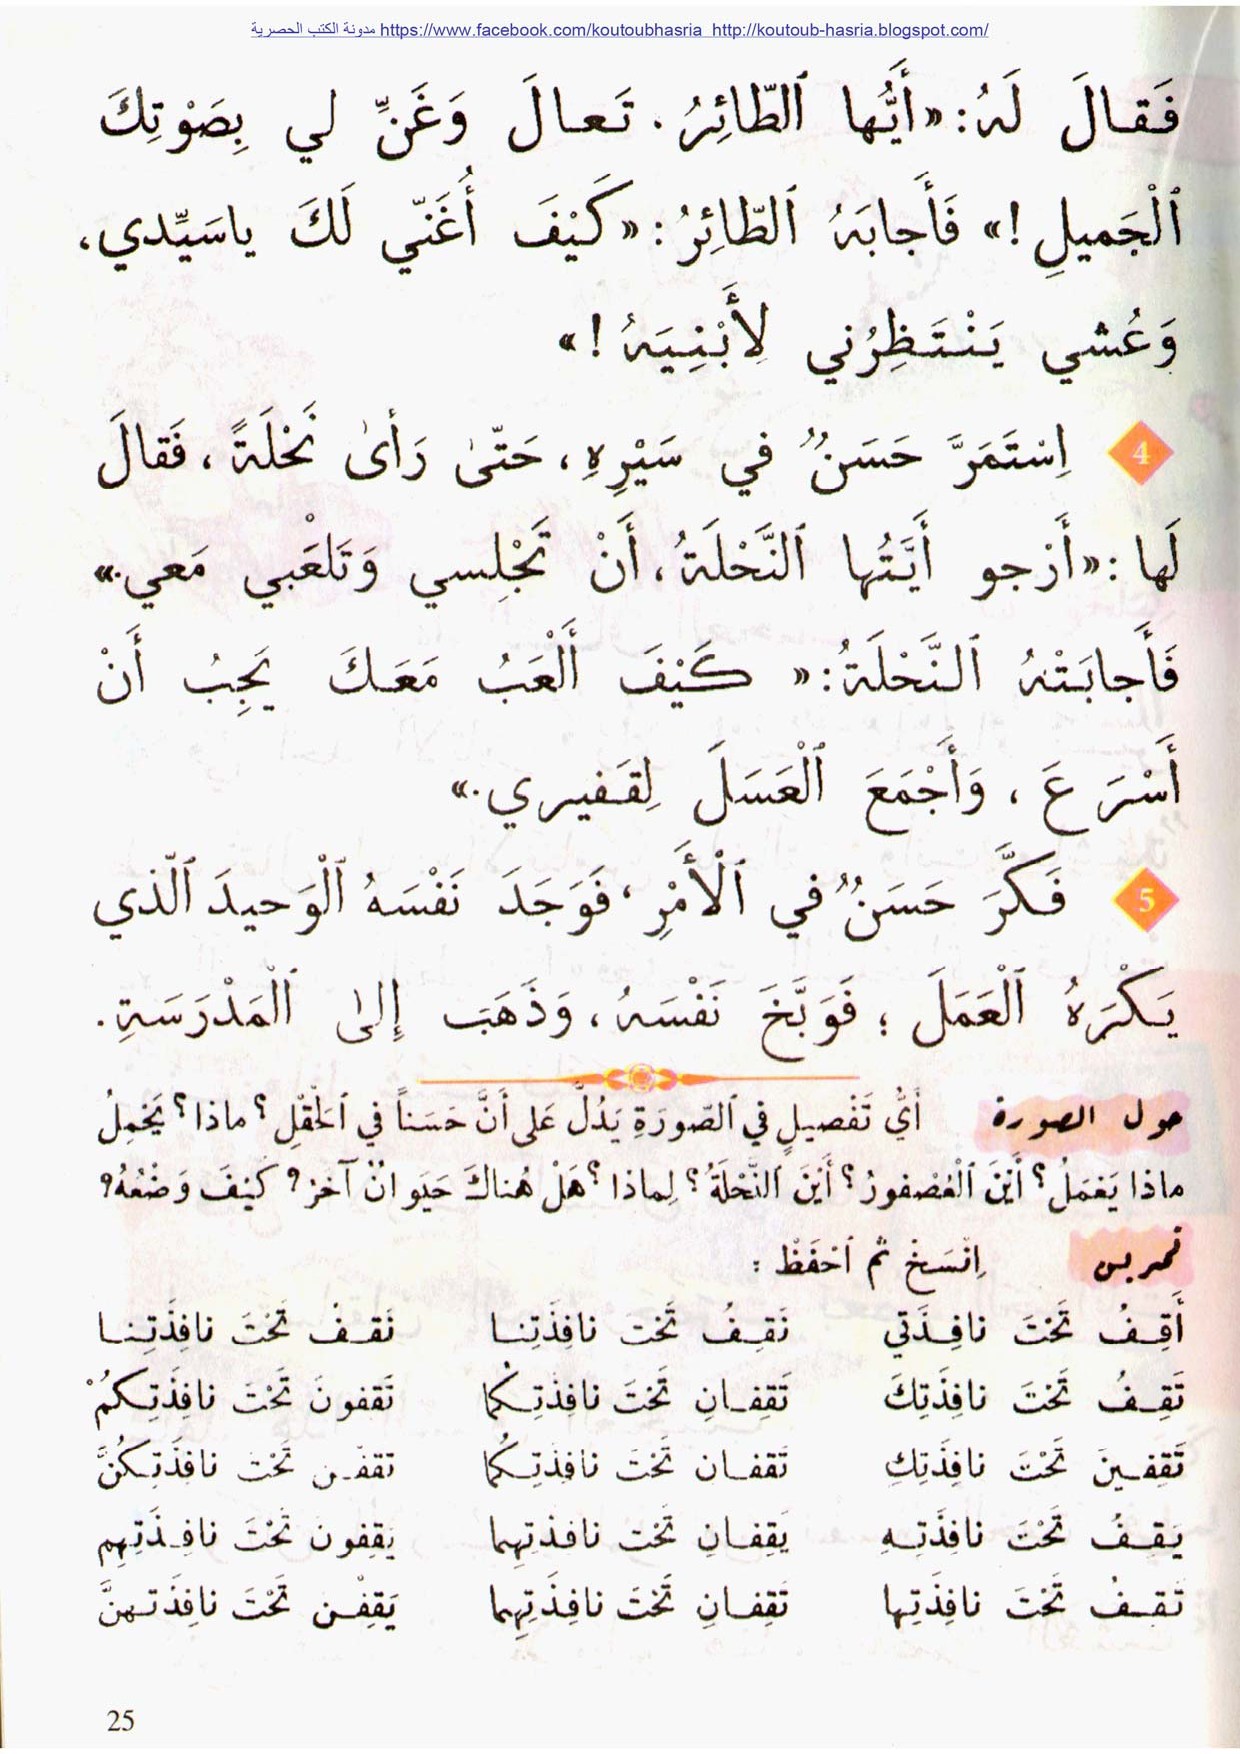 مدونة الكتب الحصرية https://www.facebook.com/koutoubhasria http://koutoub-hasria.blogspot.com/
فَقالَ لَهُ: «أَيُّها ٱلطّائِرُ. تَعالَ وَغَنِّ لي بِصَوْتِكَ
ٱلْجَميلِ!» فَأَجابَهُ ٱلطّائِرُ: «كَيْفَ أُغَنّي لَكَ ياسَيِّدي،
وَعُشي يَنْتَظِرُني لِأَبْنِيَهُ!»
4 اِسْتَمَرَّ حَسَنٌ في سَيْرِهِ، حَتّىٰ رَأىٰ نَحْلَةً، فَقالَ
لَها: «أَرْجو أَيَّتُها ٱلنَّحْلَةُ، أَنْ تَجْلِسي وَتَلْعَبي مَعي.»
فَأَجابَتْهُ ٱلنَّحْلَةُ: « كَيْفَ أَلْعَبُ مَعَكَ يَجِبُ أَنْ
أَسْرَعَ، وَأَجْمَعَ ٱلْعَسَلَ لِقَفيري.»
5 فَكَّرَ حَسَنٌ في ٱلْأَمْرِ، فَوَجَدَ نَفْسَهُ ٱلْوَحيدَ ٱلَّذي
يَكْرَهُ ٱلْعَمَلَ؛ فَوَبَّخَ نَفْسَهُ، وَذَهَبَ إِلىٰ ٱلْمَدْرَسَةِ.
حول الصورة أَيُّ تَفْصيلٍ في ٱلصّورَةِ يَدُلُّ عَلى أَنَّ حَسَناً في ٱلْحَقْلِ؟ ماذا؟ يَحْمِلُ
ماذا يَعْمَلُ؟ أَيْنَ ٱلْعُصْفورُ؟ أَيْنَ ٱلنَّحْلَةُ؟ لِماذا؟ هَلْ هُناكَ حَيَوانٌ آخَرُ؟ كَيْفَ وَضْعُهُ؟
تمرين اِنْسَخْ ثُمَّ ٱحْفَظْ :
أَقِفُ تَحْتَ نافِذَتي نَقِفُ تَحْتَ نافِذَتِنا نَقِفُ تَحْتَ نافِذَتِنا
تَقِفُ تَحْتَ نافِذَتِكَ تَقِفانِ تَحْتَ نافِذَتِكُما تَقِفونَ تَحْتَ نافِذَتِكُمْ
تَقِفينَ تَحْتَ نافِذَتِكِ تَقِفان تَحْتَ نافِذَتِكُما تقفْن تَحْتَ نافِذَتِكُنَّ
يَقِفُ تَحْتَ نافِذَتِهِ يَقِفانِ تَحْتَ نافذتِهِما يَقِفونَ تَحْتَ نافِذَتِهِم
تَقِفُ تَحْتَ نافِذَتِها تَقِفانِ تَحْتَ نافِذَتِهِما يَقِفْن تَحْتَ نافِذَتهنَّ
25